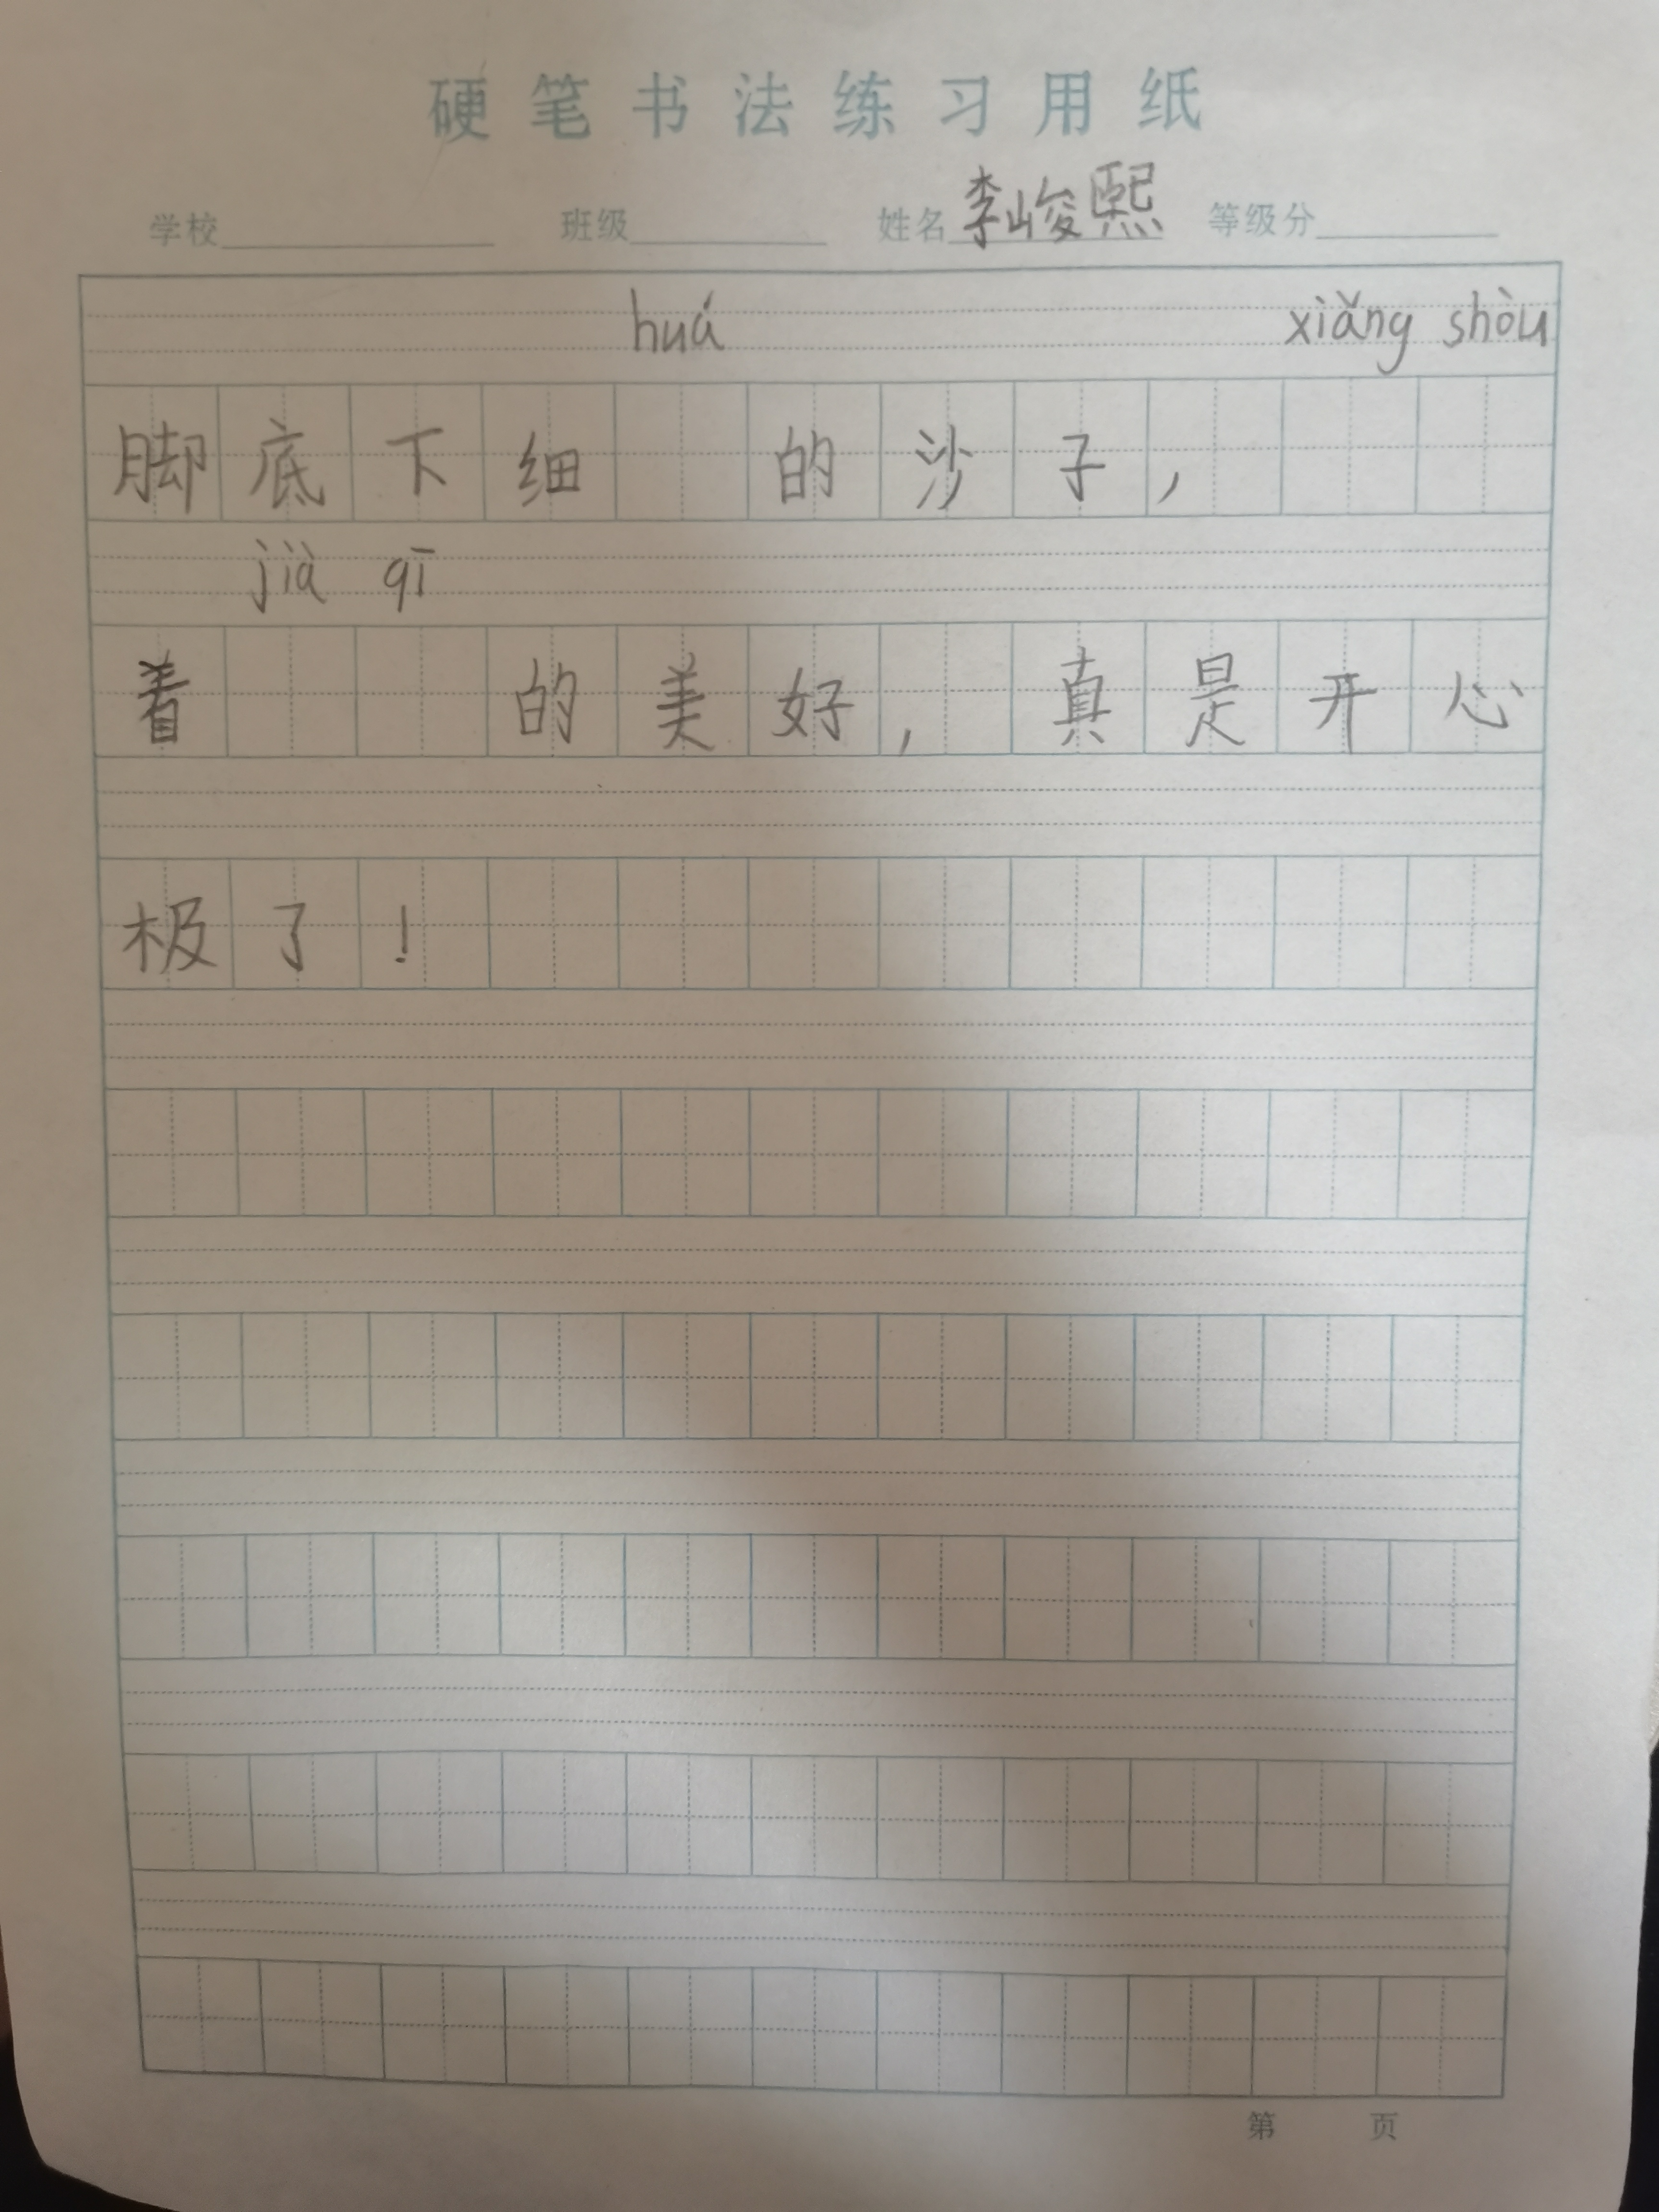 硬笔书法练习用纸
学校 班级 姓名李峻熙 等级分
huá xiǎng shòu
脚底下细 的沙子，
jià qī
着 的美好，真是开心
极了！
第 页